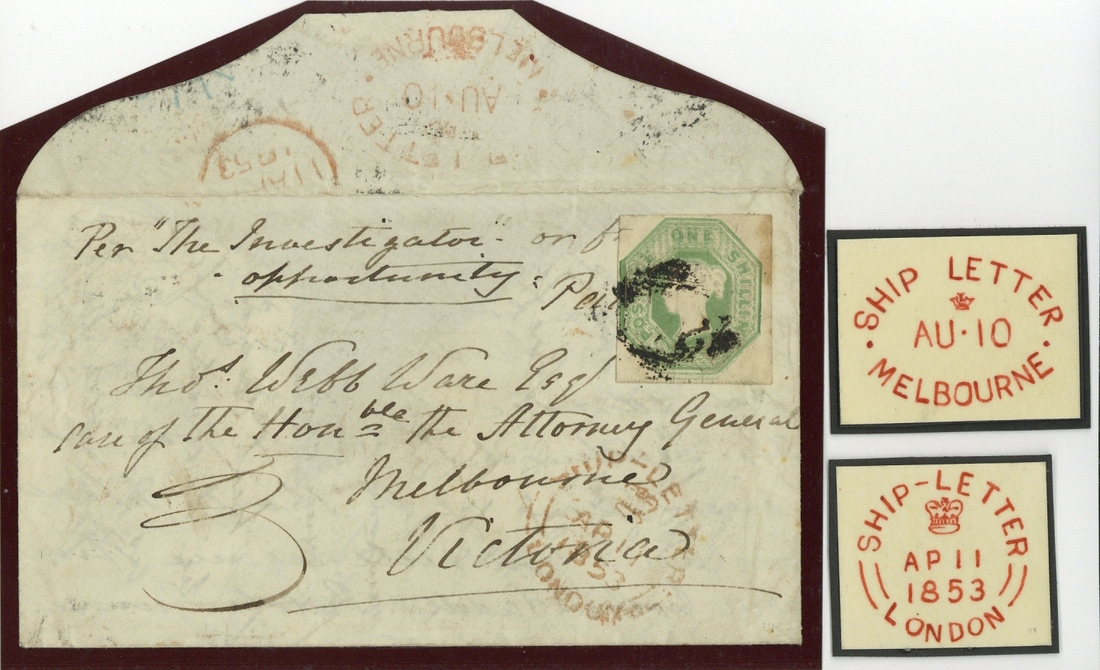 MELBOURNE
AU·10
LETTER
1853
Per "The Investigator" or
opportunity.
ONE SHILLING
Thos. Webb Ware Esqr
care of the Honble the Attorney General
Melbourne
Victoria
SHIP-LETTER
AP 11
1853
LONDON
SHIP LETTER
AU·10
MELBOURNE
SHIP-LETTER
AP 11
1853
LONDON